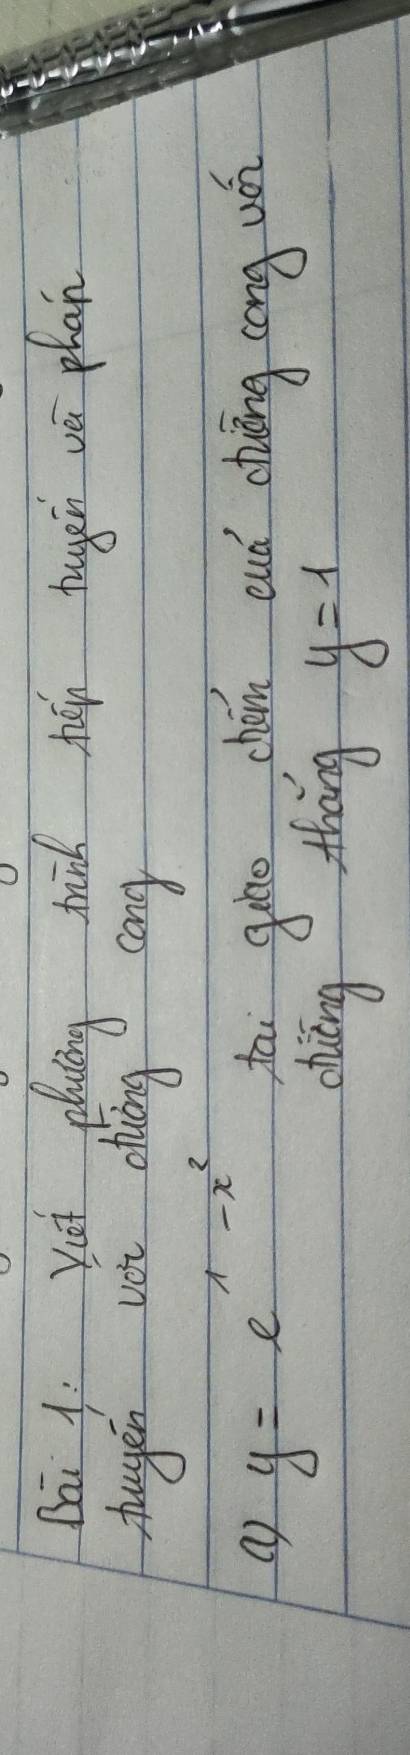 Bài 1: Viết phương trình tiếp tuyến và pháp
tuyến với đường cong
a) y = e^{1-x^2} tại giao điểm của đường cong với
đường thẳng y = 1